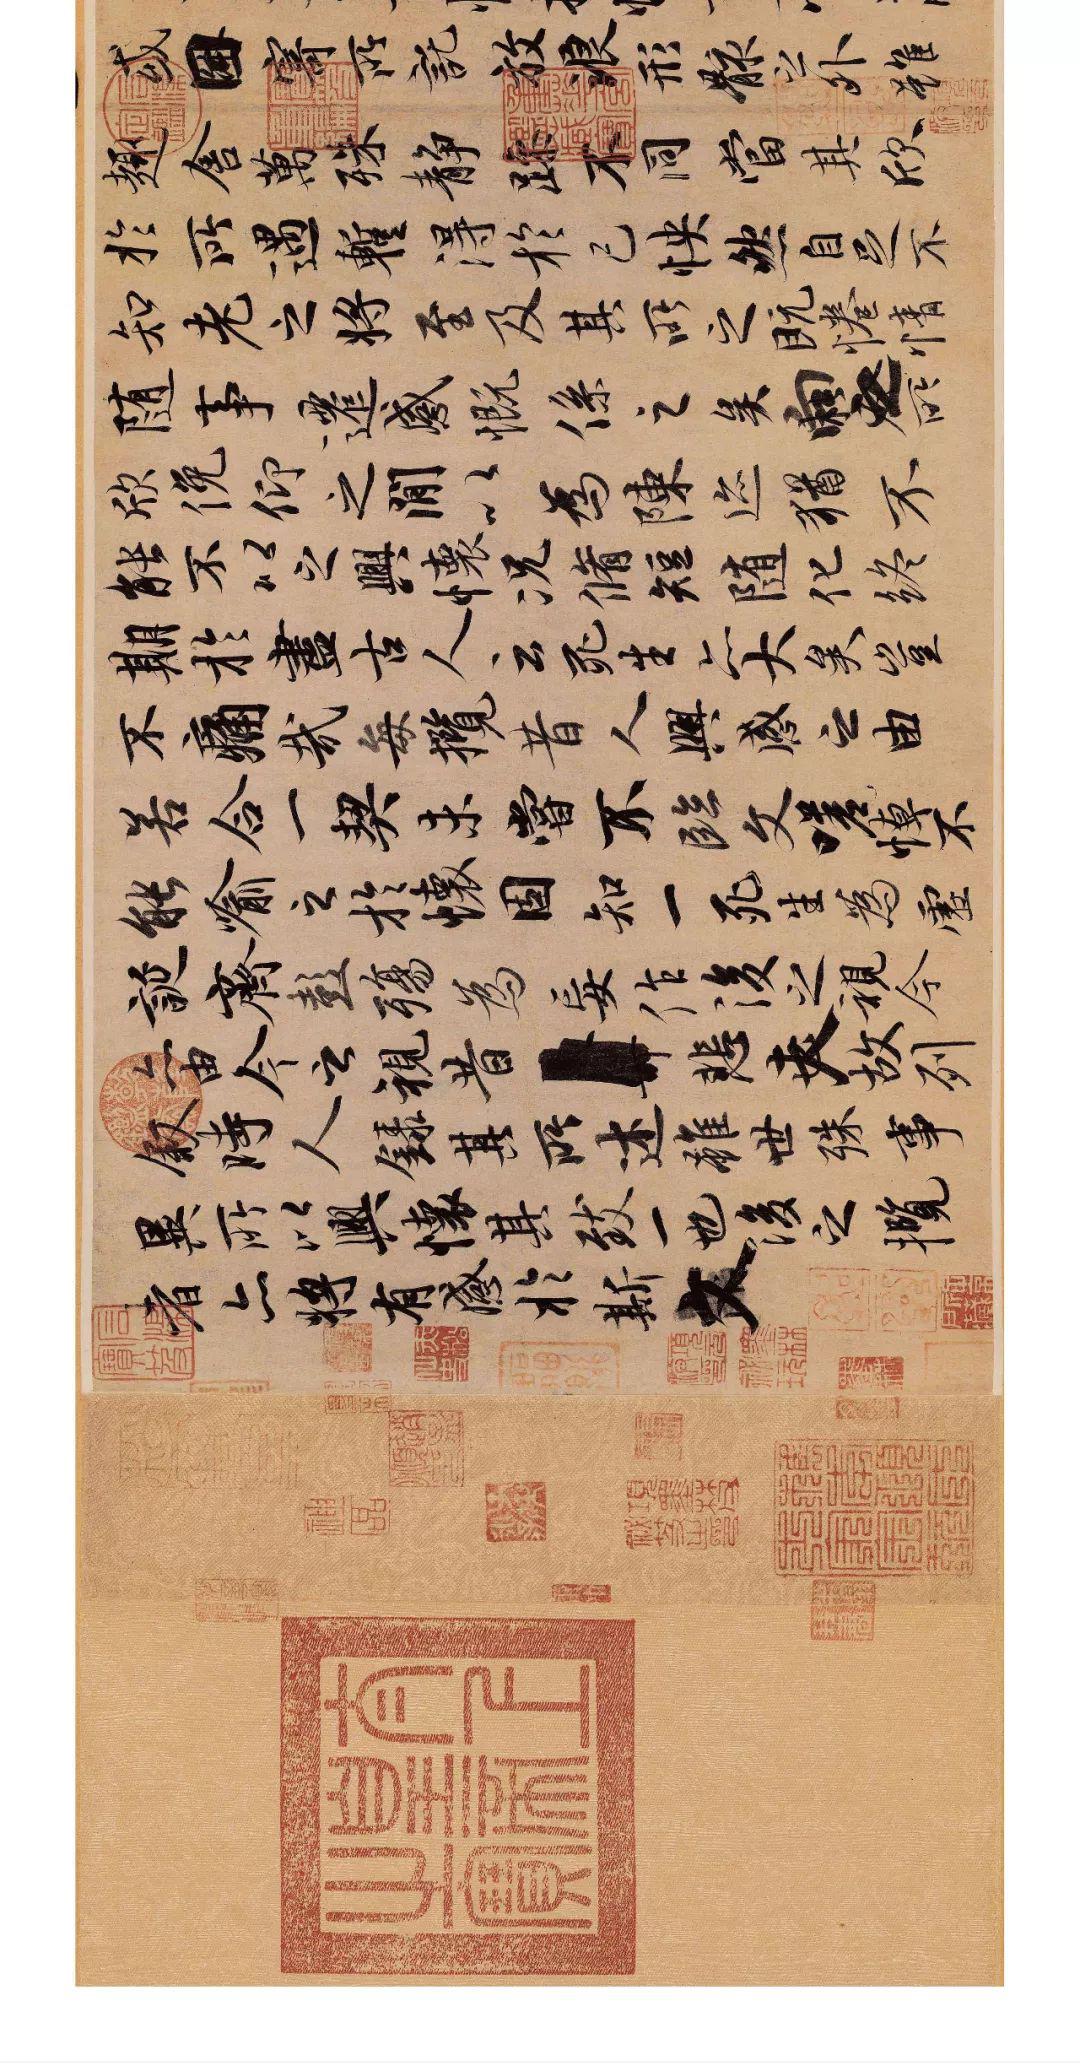 或因寄所託放浪形骸之外雖
趣舍萬殊靜躁不同當其欣
於所遇暫得於己怏然自足不
知老之將至及其所之既惓情
隨事遷感慨係之矣向之所
欣俛仰之閒以為陳迹猶不
能不以之興懷況脩短隨化終
期於盡古人云死生亦大矣豈
不痛哉每攬昔人興感之由
若合一契未嘗不臨文嗟悼不
能喻之於懷固知一死生為虛
誕齊彭殤為妄作後之視今
亦由今之視昔悲夫故列
敘時人錄其所述雖世殊事
異所以興懷其致一也後之攬
者亦將有感於斯文